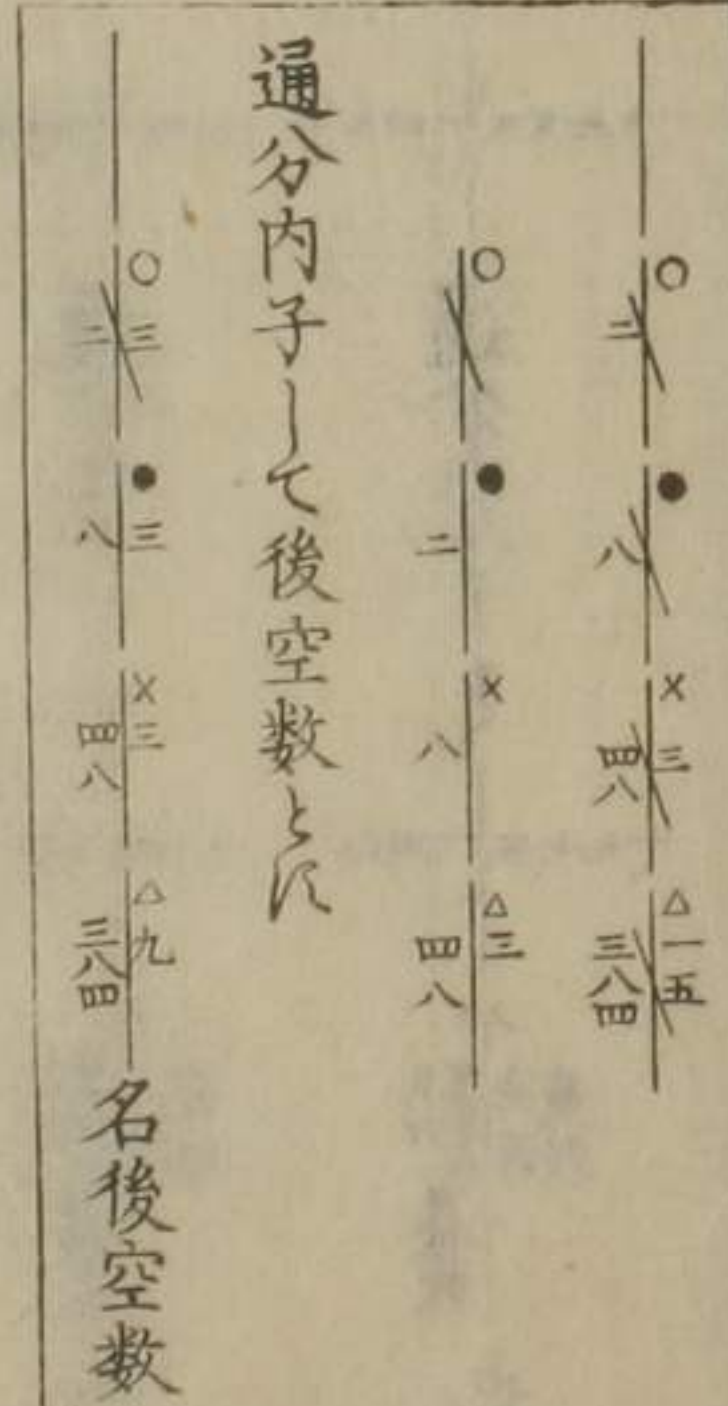 ○ 二 ● 八 × 三 四八 △ 一五 三八四
○ ● 二 × 八 △ 三 四八
通分内子して後空数とす
○ 三 二 ● 三 八 × 三 四八 △ 九 三八四 名後空数